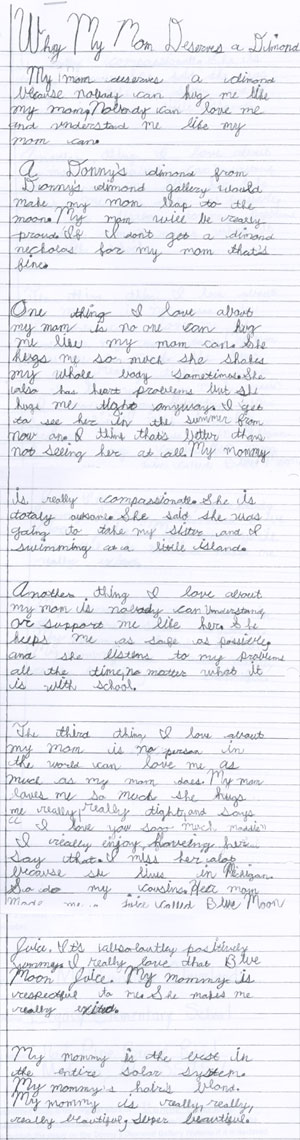 Why My Mom Deserves a Dimond
My mom deserves a dimond
because nobody can hug me like
my mom. Nobody can love me
and understand me like my
mom can.
A Donny's dimond from
Donny's dimond gallery would
make my mom leap to the
moon. My mom will be really
proud. If I don't get a dimond
necholas for my mom that's
fine.
One thing I love about
my mom is no one can hug
me like my mom can. She
hugs me so much she shakes
my whole body sometimes. She
also has heart problems but she
hugs me tight anyways. I get
to see her in the summer from
now on. I think that's better than
not seeing her at all. My mommy
is really compassionate. She is
totaly awsome. She said she was
going to take my sister and I
swimming at a little island.
Another thing I love about
my mom is nobody can understand
or support me like her. She
keeps me as safe as possible,
and she listens to my problems
all the time, no matter what it
is with school.
The third thing I love about
my mom is no person in
the world can love me as
much as my mom does. My mom
loves me so much she hugs
me really, really tight, and says
"I love you soo much
I really enjoy her
say that. I miss her alot
because she lives in Michigan.
So do my cousins. My mom
made me a juice called Blue Moon
Juice. It's absolautly positively
yummy. I really love that Blue
Moon Juice. My mommy is
respectful to me. She makes me
really exited.
My mommy is the best in
the entire solar system.
My mommy's hair's blond.
My mommy is really, really,
really beautiful, super beautiful.